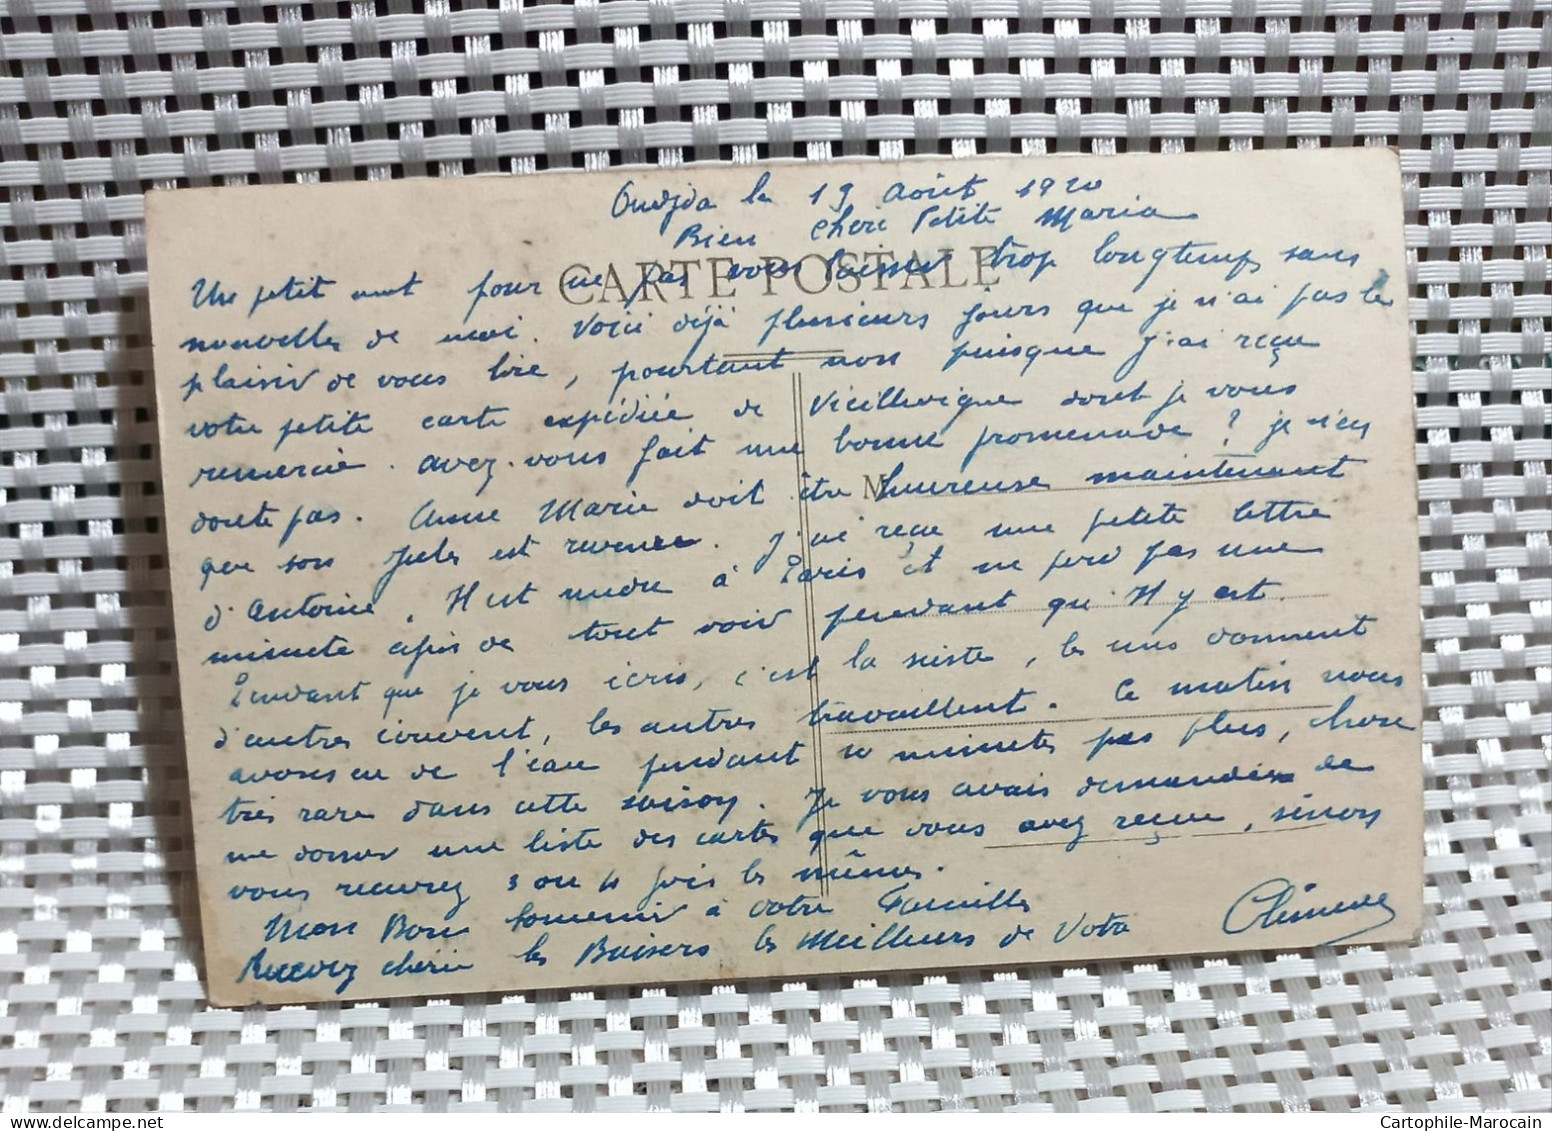 Oudjda le 19 Août 1920
Bien cheri Petite Maria
CARTE POSTALE
Un petit mot pour ne pas vous laisser trop longtemps sans
nouvelles de moi. Voici déjà plusieurs jours que je n'ai pas le
plaisir de vous lire, pourtant non puisque j'ai reçu
votre petite carte expédiée de Vieillevigne dont je vous
remercie. avez-vous fait une bonne promenade ? je n'en
doute pas. Anne Marie doit être heureuse maintenant
que son Jules est revenu. J'ai reçu une petite lettre
d'Antoine. Il est rendu à Paris et ne perd pas une
minute afin de tout voir pendant qu'Il y est.
Pendant que je vous écris, c'est la sieste, les uns dorment
d'autres écrivent, les autres travaillent. Ce matin nous
avons eu de l'eau pendant 10 minutes pas plus, chose
très rare dans cette saison. Je vous avais demandé de
me donner une liste des cartes que vous avez reçue, sinon
vous recevrez 3 ou 4 fois les mêmes.
Mon Bon Souvenir à votre Famille
Recevez chérie les Baisers les Meilleurs de Votre
Clément
Cartophile-Marocain